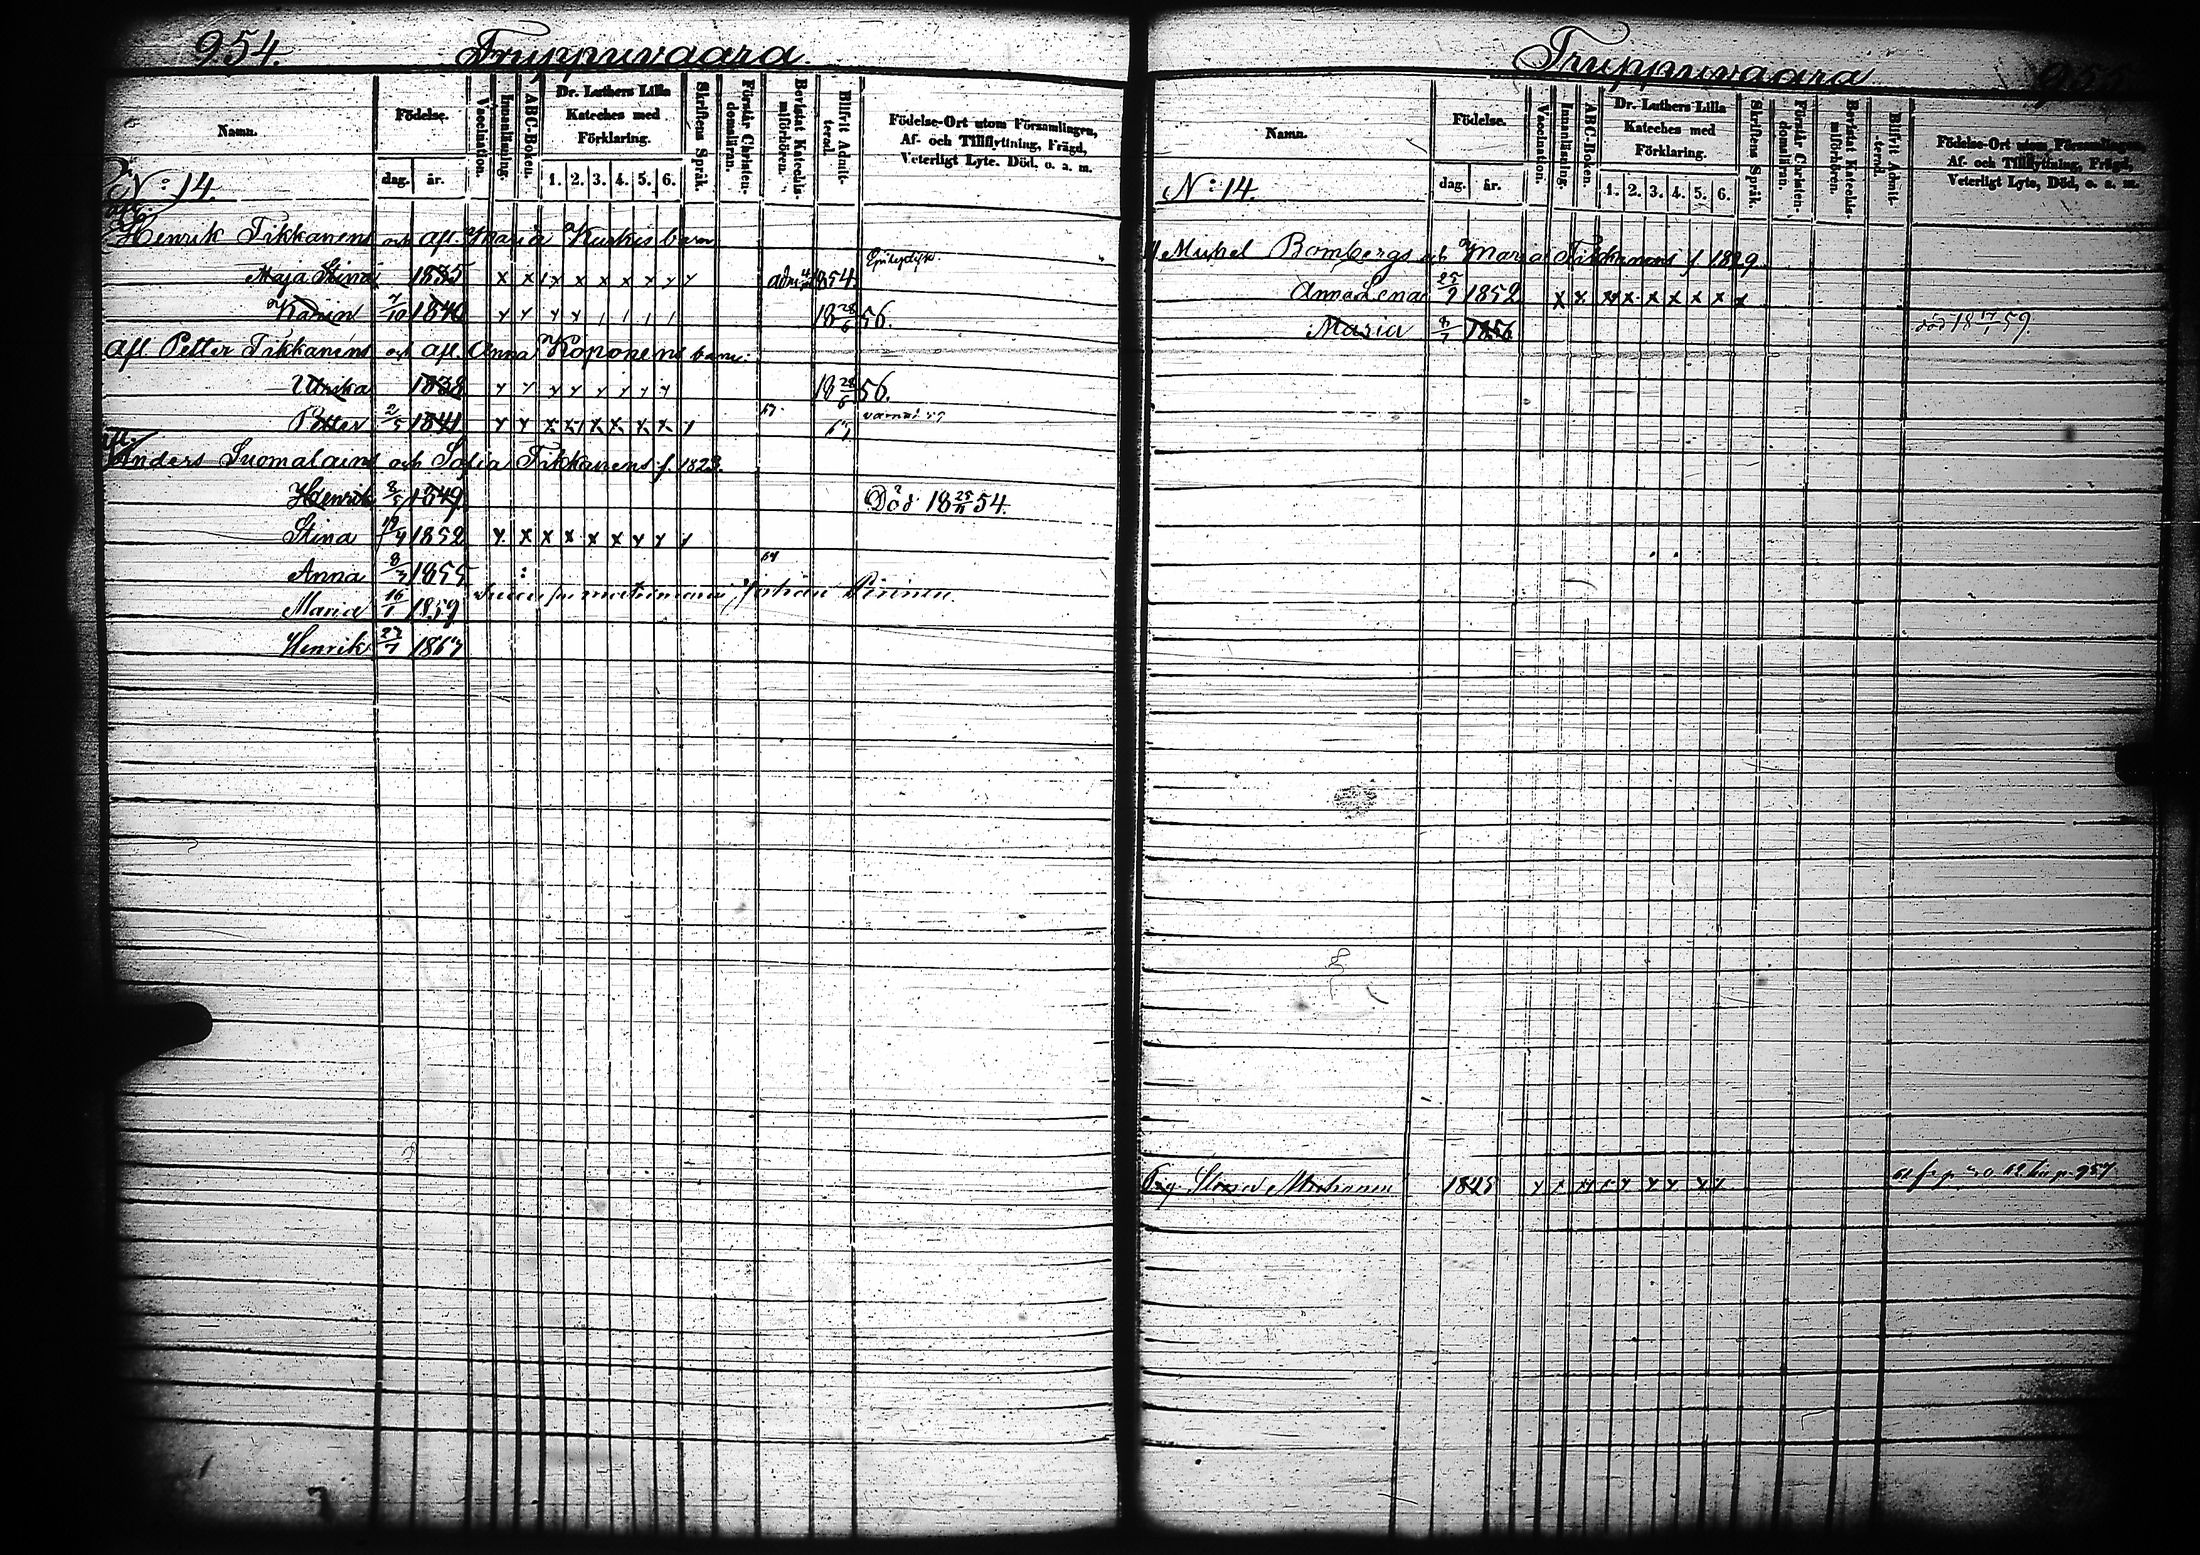 954. Truppuvaara
Namn. Födelse. dag. år. Vaccination. Innanläsning. ABC-Boken. Dr. Luthers Lilla Kateches med Förklaring. 1. 2. 3. 4. 5. 6. Skriftens Språk. Förstår Christendomsläran. Bevistat Katechismiförhören. Blifvit Admitterad. Födelse-Ort utom Församlingen, Af- och Tillflyttning, Frägd, Veterligt Lyte. Död. o. a. m.
N:14.
Henrik Tikkanens och Afl. Maria barn
Maja Stina 1835 x x x x x x x 1854.
Karin 7/10 1840 18 28/6 56.
Afl Petter Tikkanens och Afl. Anna Koponens barn:
Ulrika 1838 18 28/6 56.
Petter 2/5 1841 x x x x x x
Afl.
Anders Suomalains och Sofia Tikkanens f. 1823.
Henrik 8/5 1849. Död 18 25/11 54.
Stina 1852 x x x x x
Anna 8/3 1855
Maria 16/1 1859
Henrik 27/7 1867
Truppuvaara 955
Namn. Födelse. dag. år. Vaccination. Innanläsning. ABC-Boken. Dr. Luthers Lilla Kateches med Förklaring. 1. 2. 3. 4. 5. 6. Skriftens Språk. Förstår Christendomsläran. Bevistat Katechismiförhören. Blifvit Admitterad. Födelse-Ort utom Församlingen, Af- och Tillflyttning, Frägd, Veterligt Lyte, Död, o. a. m.
N:14.
Mickel Bombergs och Maria Tikkanens f. 1829.
Anna Lena 25/9 1852 x x x x x x x x x
Maria 8/7 1856 död 18 17/1 59.
1825 957